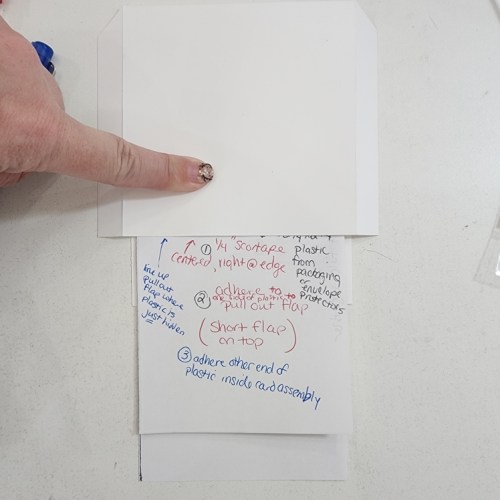 ① 1/4" scortape
centered, right @ edge
plastic
from
packaging
or
envelope
protectors
line up
pullout
flap where
plastic is
just hidden
② adhere to
one end of plastic to
pull out flap
(short flap
on top)
③ adhere other end of
plastic inside card assembly